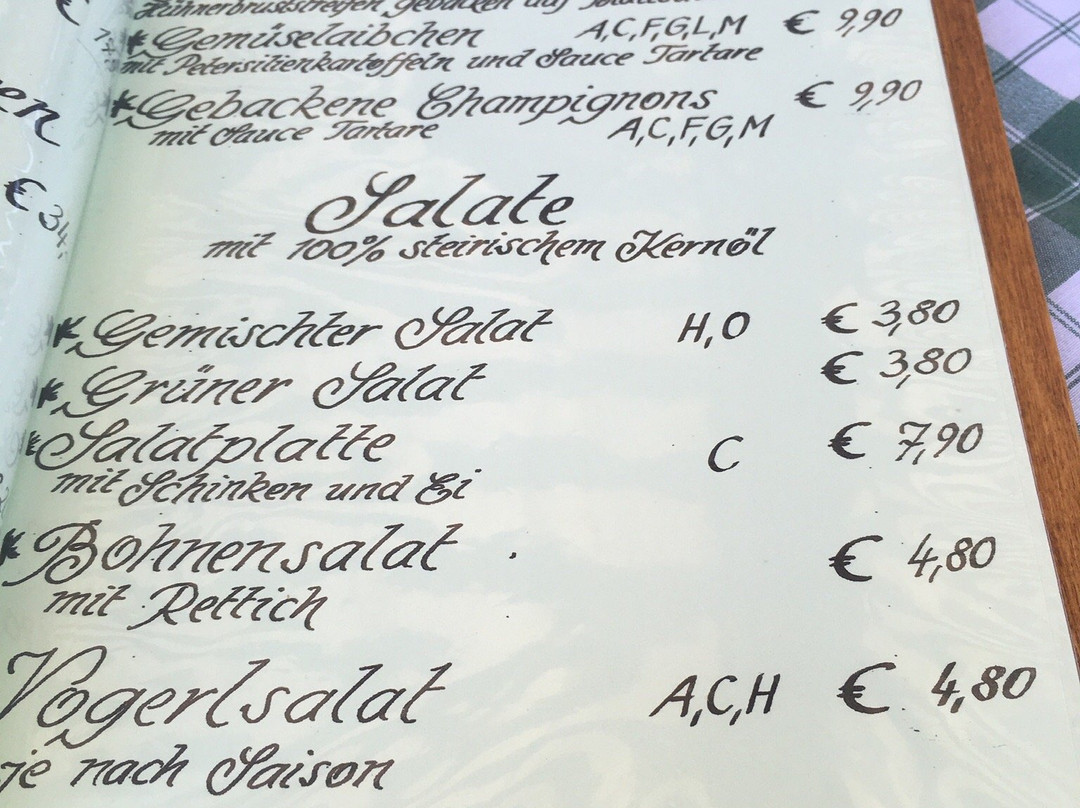 Hühnerbruststreifen gebacken auf
Gemüselaibchen A,C,F,G,L,M € 9,90
mit Petersilienkartoffeln und Sauce Tartare
Gebackene Champignons € 9,90
mit Sauce Tartare A,C,F,G,M
Salate
mit 100% steirischem Kernöl
Gemischter Salat H,O € 3,80
Grüner Salat € 3,80
Salatplatte C € 7,90
mit Schinken und Ei
Bohnensalat € 4,80
mit Rettich
Vogerlsalat A,C,H € 4,80
je nach Saison